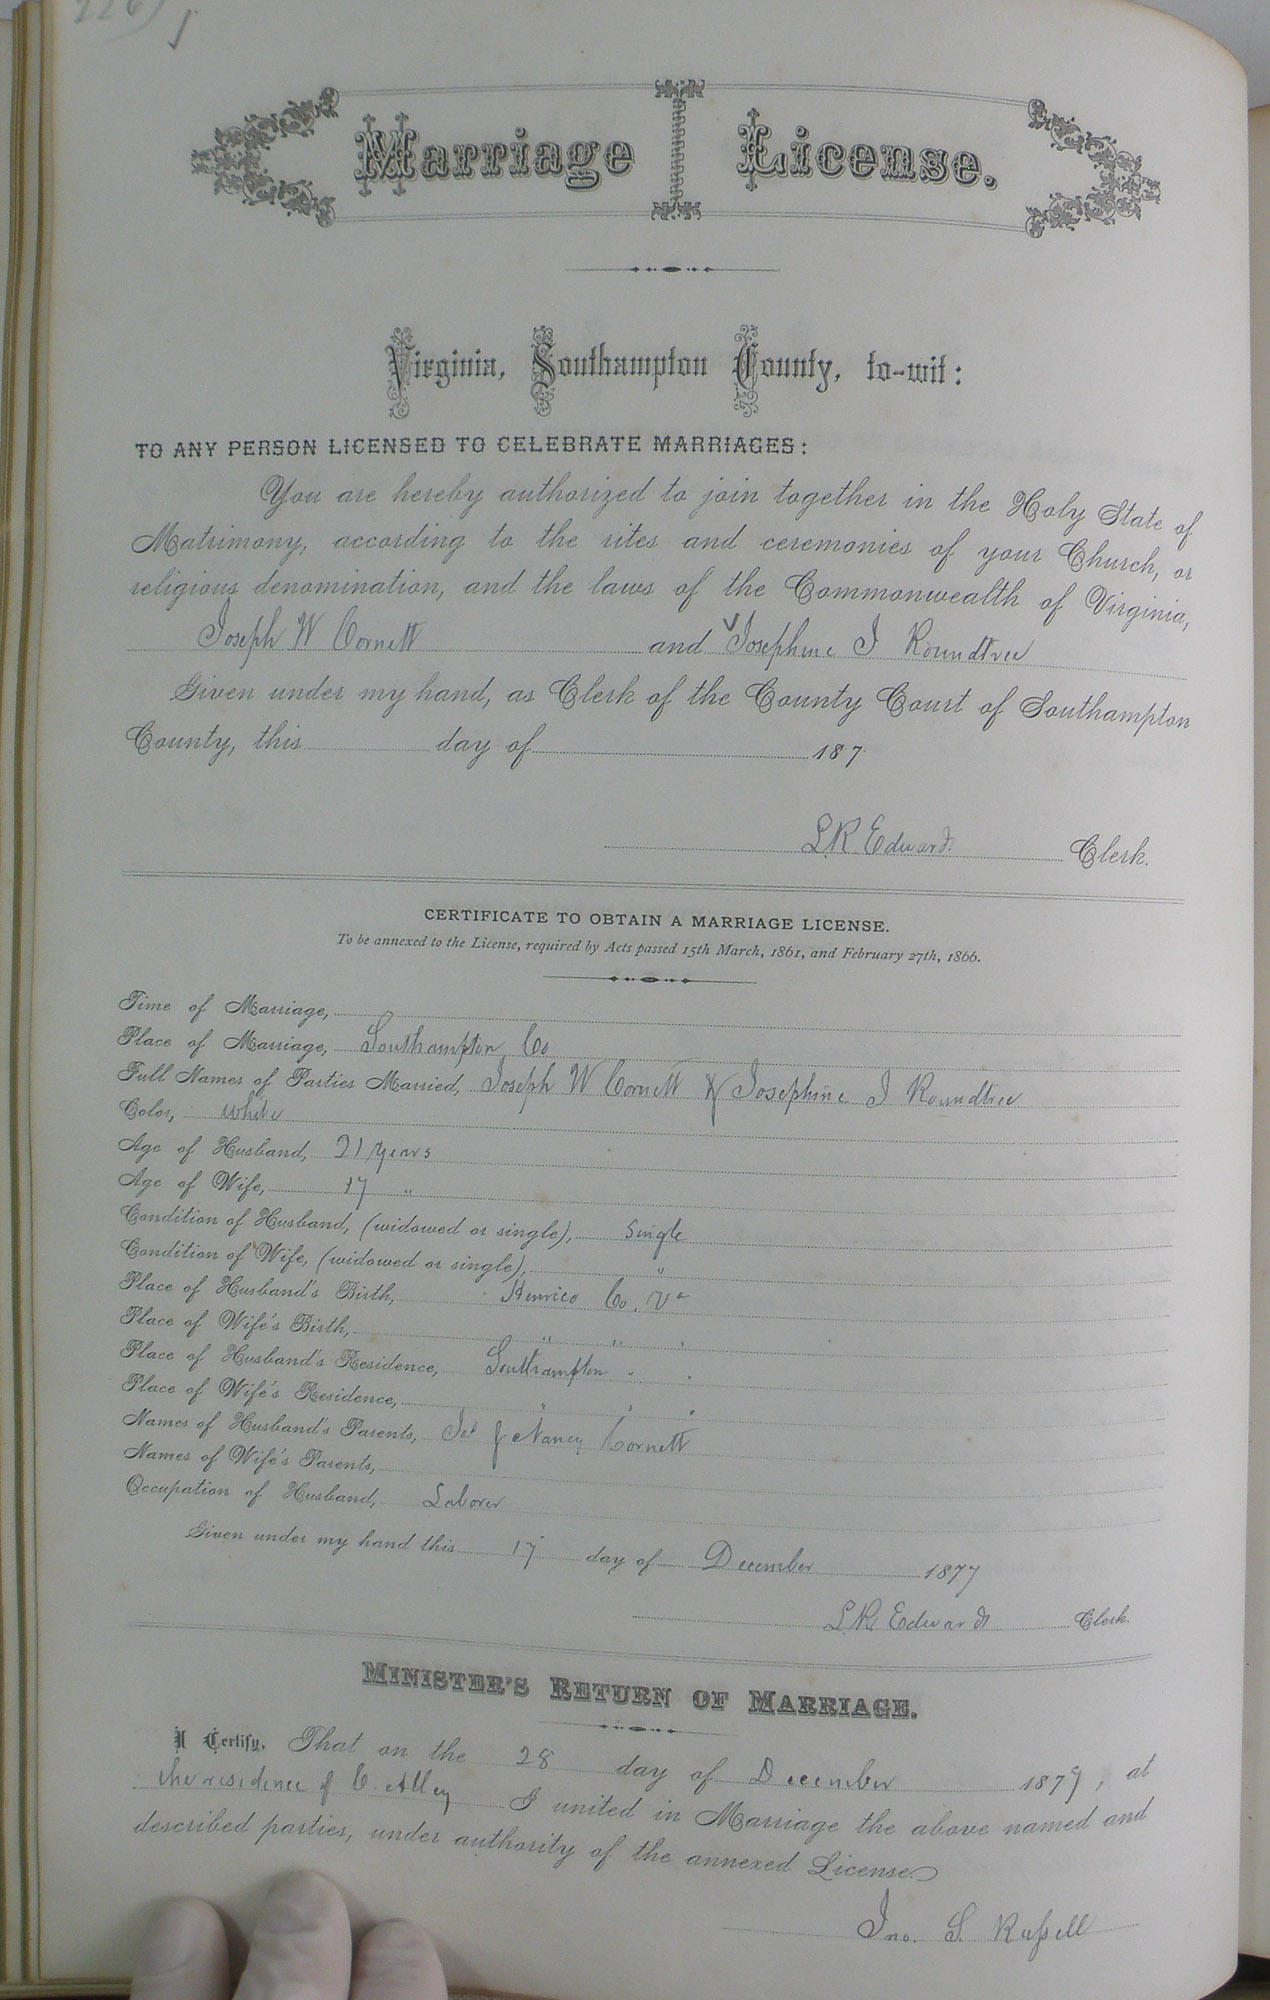 Marriage License.
Virginia, Southampton County, to-wit:
TO ANY PERSON LICENSED TO CELEBRATE MARRIAGES:
You are hereby authorized to join together in the Holy State of
Matrimony, according to the rites and ceremonies of your Church, or
religious denomination, and the laws of the Commonwealth of Virginia,
Joseph W Cornett and Josephine I Roundtree
Given under my hand, as Clerk of the County Court of Southampton
County, this day of 187
L.R. Edwards Clerk.
CERTIFICATE TO OBTAIN A MARRIAGE LICENSE.
To be annexed to the License, required by Acts passed 15th March, 1861, and February 27th, 1866.
Time of Marriage,
Place of Marriage, Southampton Co
Full Names of Parties Married, Joseph W Cornett & Josephine I Roundtree
Color, white
Age of Husband, 21 years
Age of Wife, 17 "
Condition of Husband, (widowed or single), Single
Condition of Wife, (widowed or single), "
Place of Husband's Birth, Henrico Co. Va
Place of Wife's Birth, " " "
Place of Husband's Residence, Southampton " "
Place of Wife's Residence, " " "
Names of Husband's Parents, & Nancy Cornett
Names of Wife's Parents,
Occupation of Husband, Laborer
Given under my hand this 17 day of December 1877
L.R. Edwards Clerk.
MINISTER'S RETURN OF MARRIAGE.
I Certify, That on the 28 day of December 1877, at
the residence of C. Alley I united in Marriage the above named and
described parties, under authority of the annexed License.
Jno. S. Russell